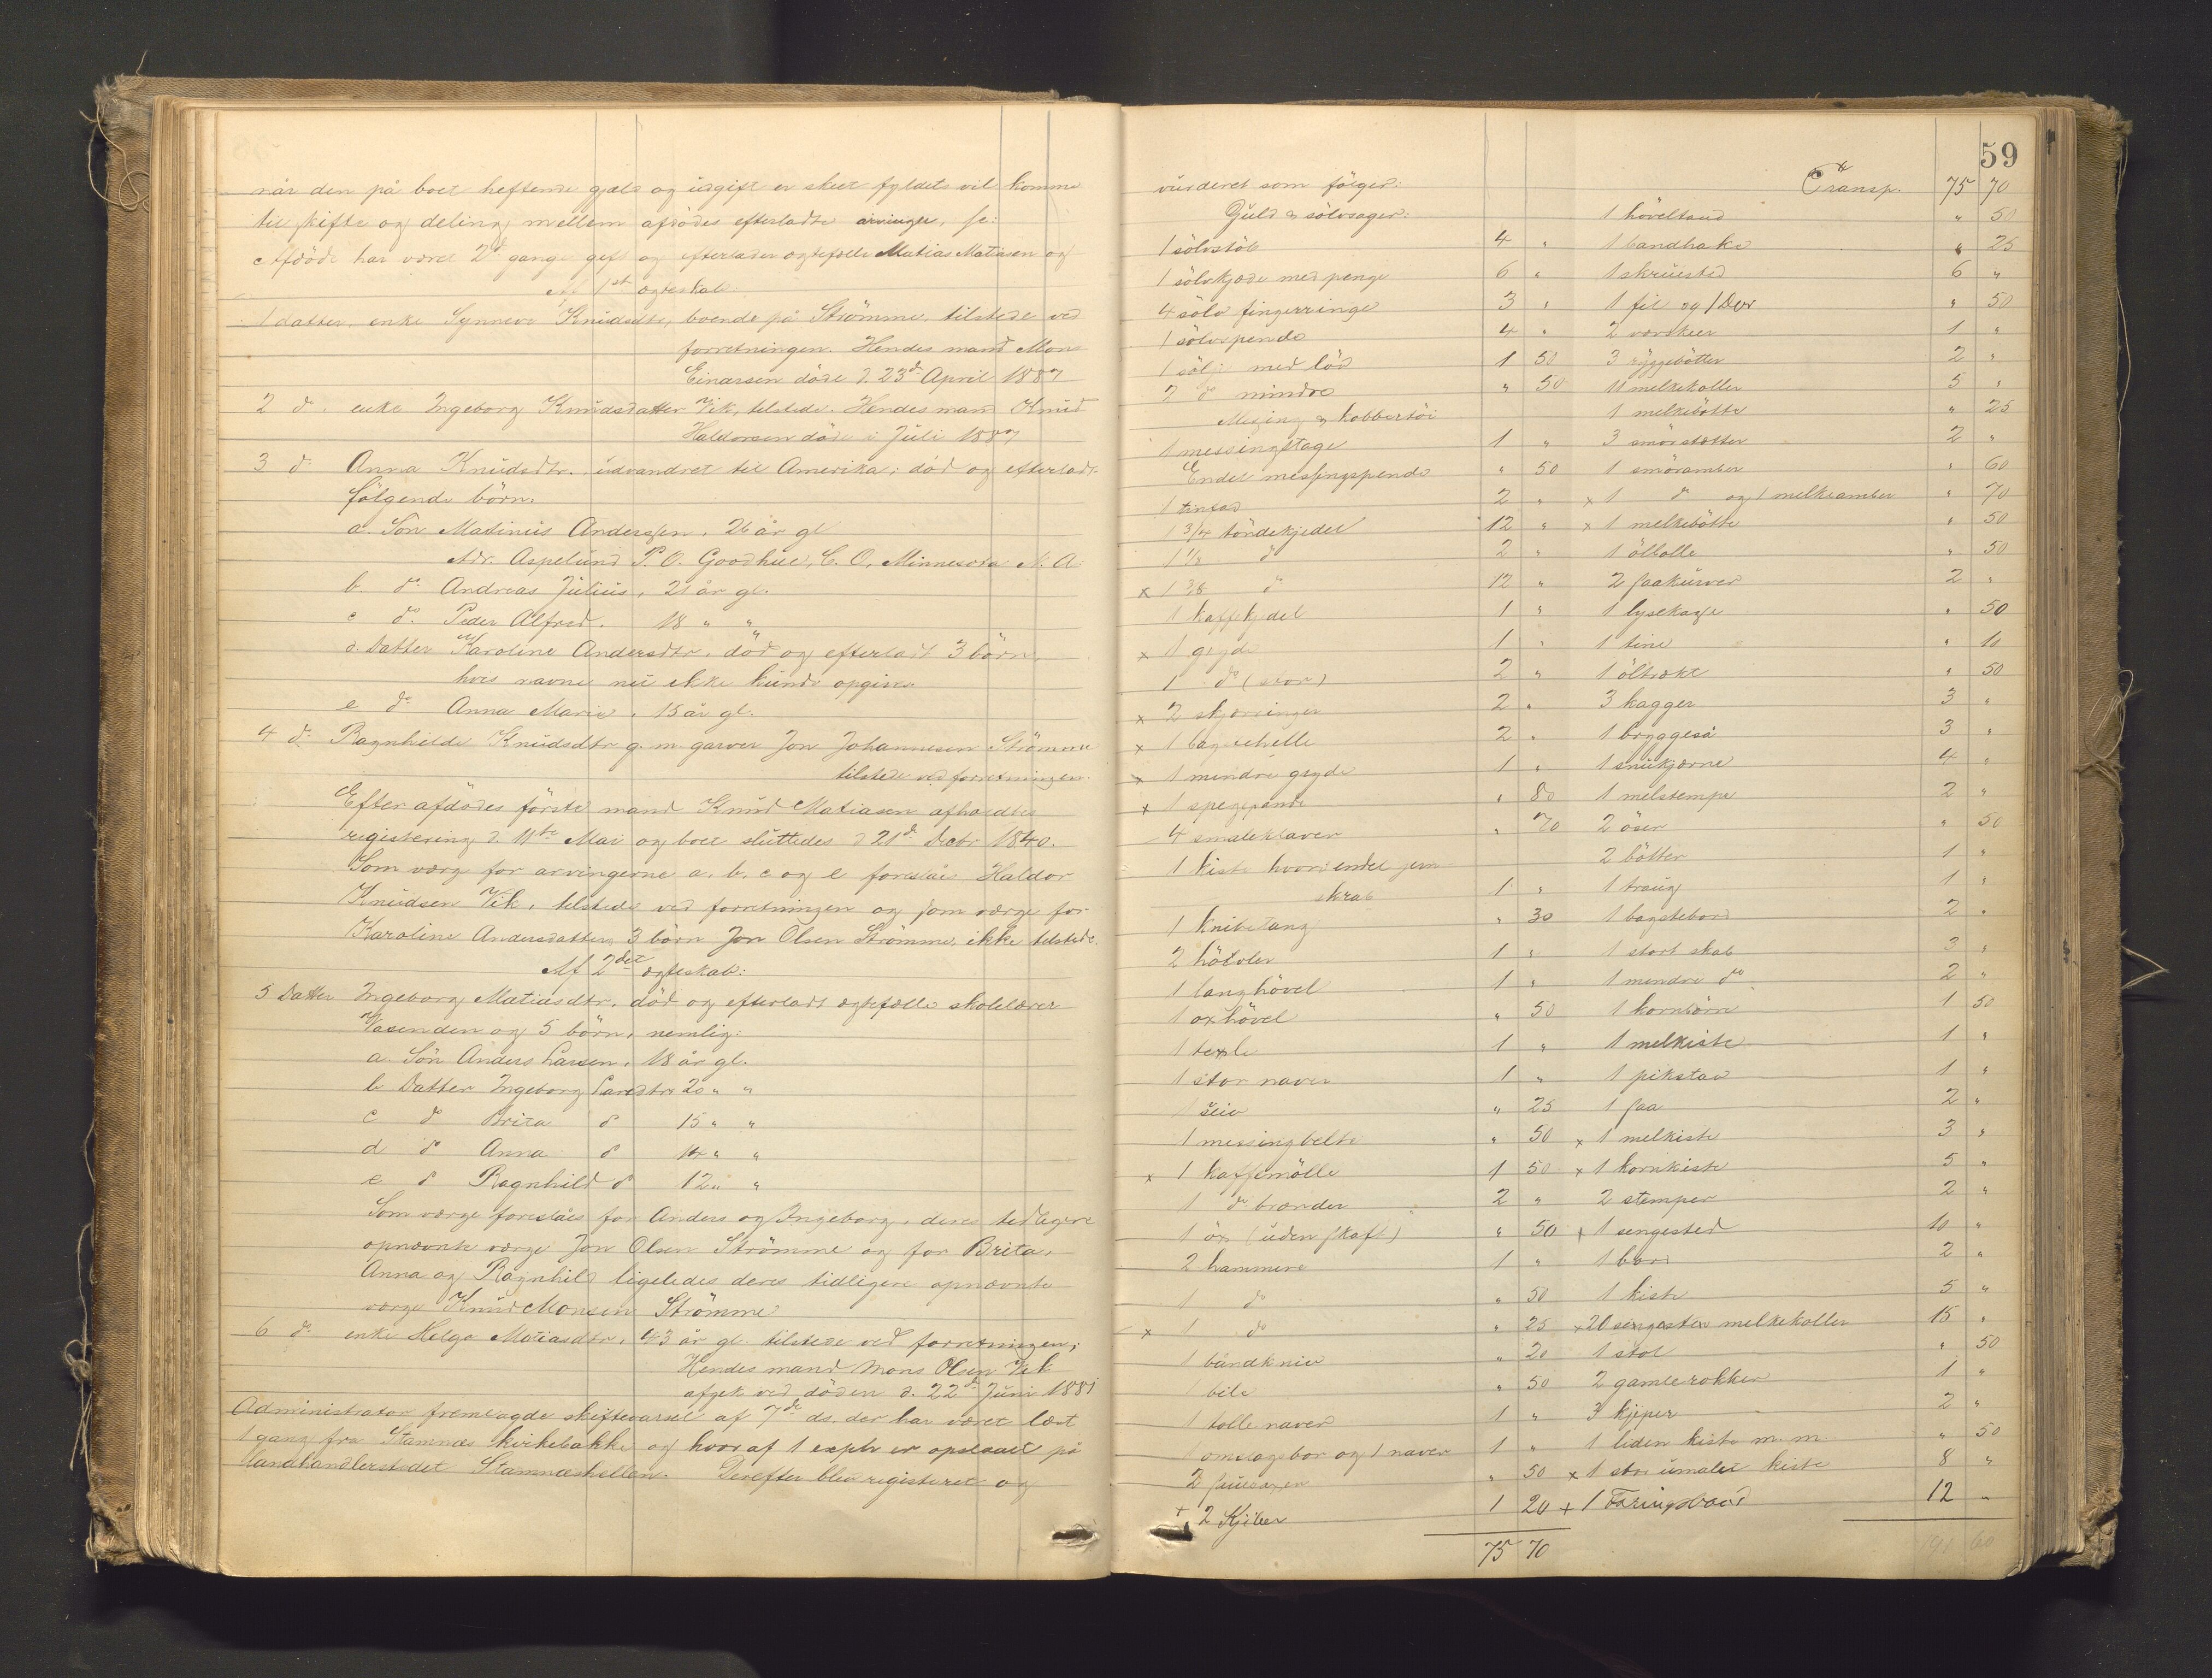 når den på boet heftende gjæld og udgift er skeet fyldets vil komme
til skifte og deling mellem afdødes efterladte arvinger, se:
Afdøde har været 2 gange gift og efterlader ægtefælle Matias Matiasen og
Af 1st ægteskab:
1 datter, enke Synneve Knudsdtr, boende på Strömme, tilstede ved
forretningen. Hendes mand Mons
Einarsen døde d. 23d April 1887
2 do enke Ingeborg Knudsdatter Vik, tilstede. Hendes man Knud
Haldorsen döde i Juli 1887
3 do Anna Knudsdtr. udvandret til Amerika; död og efterladt
fölgende börn.
a. Sön Matinius Anderssen, 26 år gl
Adr. Aspelund P.O. Goodhue, C.O, Minnesota N. A.
b. do Andreas Julius, 21 år gl.
c do Peder Alfred. 18 " "
d. Datter Karoline Andersdtr, död og efterladt 3 börn,
hvis navne nu ikke kunde opgives
e do Anna Marie, 15 år gl.
4 do Ragnhilde Knudsdtr g. m. garver Jon Johannesen Strömme
tilstede ved forretningen.
Efter afdödes förste mand Knud Matiasen afholdtes
registering d. 11te Mai og boet sluttedes d 21d Decbr 1840.
Som værge for arvingerne a. b. c og e foreslåes Haldor
Knudsen Vik, tilstede ved forretningen og som værge for
Karoline Andersdatters 3 börn Jon Olsen Strömme, ikke tilstede.
Af 2det ægteskab:
5 Datter Ingeborg Matiasdtr. död og efterladt ægtefælle skolelærer
Vasenden og 5 börn, nemlig:
a. Sön Anders Larsen, 18 år gl.
b Datter Ingeborg Larsdtr 20 " "
c do Brita do 15 " "
d do Anna do 14 " "
e do Ragnhild do 12 " "
Som værge foreslåes for Anders og Ingeborg, deres tidligere
opnævnte værge Jon Olsen Strömme og for Brita,
Anna og Ragnhild ligeledes deres tidligere opnævnte
værge Knud Monsen Strömme
6 do enke Helga Matiasdtr, 43 år gl. tilstede ved forretningen;
Hendes mand Mons Olsen Vik
afgik ved döden d. 22d Juni 1881
Administrator fremlagde skiftevarsel af 7de ds. der har været læst
1 gang fra Stamnæs kirkebakke og hvoraf 1 explr er opslaaet på
landhandlerstedet Stamneshellen. Derefter blev registeret og
59
vurderet som fölger:
Guld & sölvsager:
1 sölvstöb 4 "
1 sölvkjæde med penge 6 "
4 sölv fingerringe 3 "
1 sölvspende 4 "
1 sölj med löd 1 50
2 do mindre " 50
Messing & kobbertöi
1 messingstage 1 "
Endel messingspende " 50
1 tinfad 2 "
1 3/4 töndekjedel 12 "
1 1/2 do 2 "
x 1 36 do 12 "
1 kaffekjedel 1 "
x 1 gryde 1 "
1 do (stor) 2 "
x 2 skjæringer 2 "
x 1 bagstehelle 2 "
x 1 mindre gryde 1 "
x 1 stegepande " 80
4 smaleklaver " 70
1 kiste hvori endel jern
skrab 1 "
1 knibetang " 30
2 hövler 1 "
1 langhövel 1 "
1 oxhövel " 50
1 texle 1 "
1 stor naver 1 "
1 " 25
1 messingbelte " 50
x 1 kaffemölle 1 50
1 do brænder 2 "
1 öx (uden skaft) " 50
2 hammere 1 "
1 do " 50
x 1 do " 25
1 båndkniv " 20
1 bile " 50
1 tolle naver 1 "
1 omslagsbor og 1 naver 1 "
2 " 50
+ 2 Kjiler 1 20
75 70
Transp. 75 70
1 höveltand " 50
1 bandhake " 25
1 skruested 6 "
1 fil og 1 Bor " 50
2 1 "
3 ryggebötter 2 "
11 melkekoller 5 "
1 melkebötte " 25
3 smörstætter 2 "
1 smöramber " 60
x 1 do og 1 melkeamber " 70
x 1 melkebötte " 50
1 ölbolle " 50
2 saakurver 2 "
1 lysekagge " 50
1 tine " 10
1 öltrækt " 50
3 kagger 3 "
1 bryggeså 3 "
1 snukjærne 4 "
1 melstempe 2 "
2 öser " 50
2 bötter 1 "
1 traug 1 "
1 bagstebord 2 "
1 stort skab 3 "
1 mindre do 2 "
1 kornbörn 1 50
1 melkiste 1 "
1 pikstav 1 "
1 saa 2 "
x 1 melkiste 3 "
x 1 kornkiste 5 "
2 stemper 2 "
x 1 sengested 10 "
1 bord 2 "
1 kiste 5 "
x 20 melkekoller 15 "
1 stol " 50
2 gamle rokker 1 "
3 kjeper 2 "
1 liden kiste m. m. " 50
x 1 stor umalet kiste 8 "
+ 1 Færingsbaad 12 "